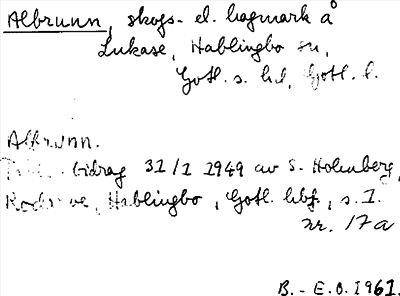 Albrunn, skogs- el. hagmark å
Lukase, Hablingbo sn,
Gotl. s. hd, Gotl. l.
Albrunn.
bidrag 31/1 1949 av S. Holmberg,
Hablingbo, Gotl. hbf., s. 1.
nr. 17a
B.-E.O. 1961.